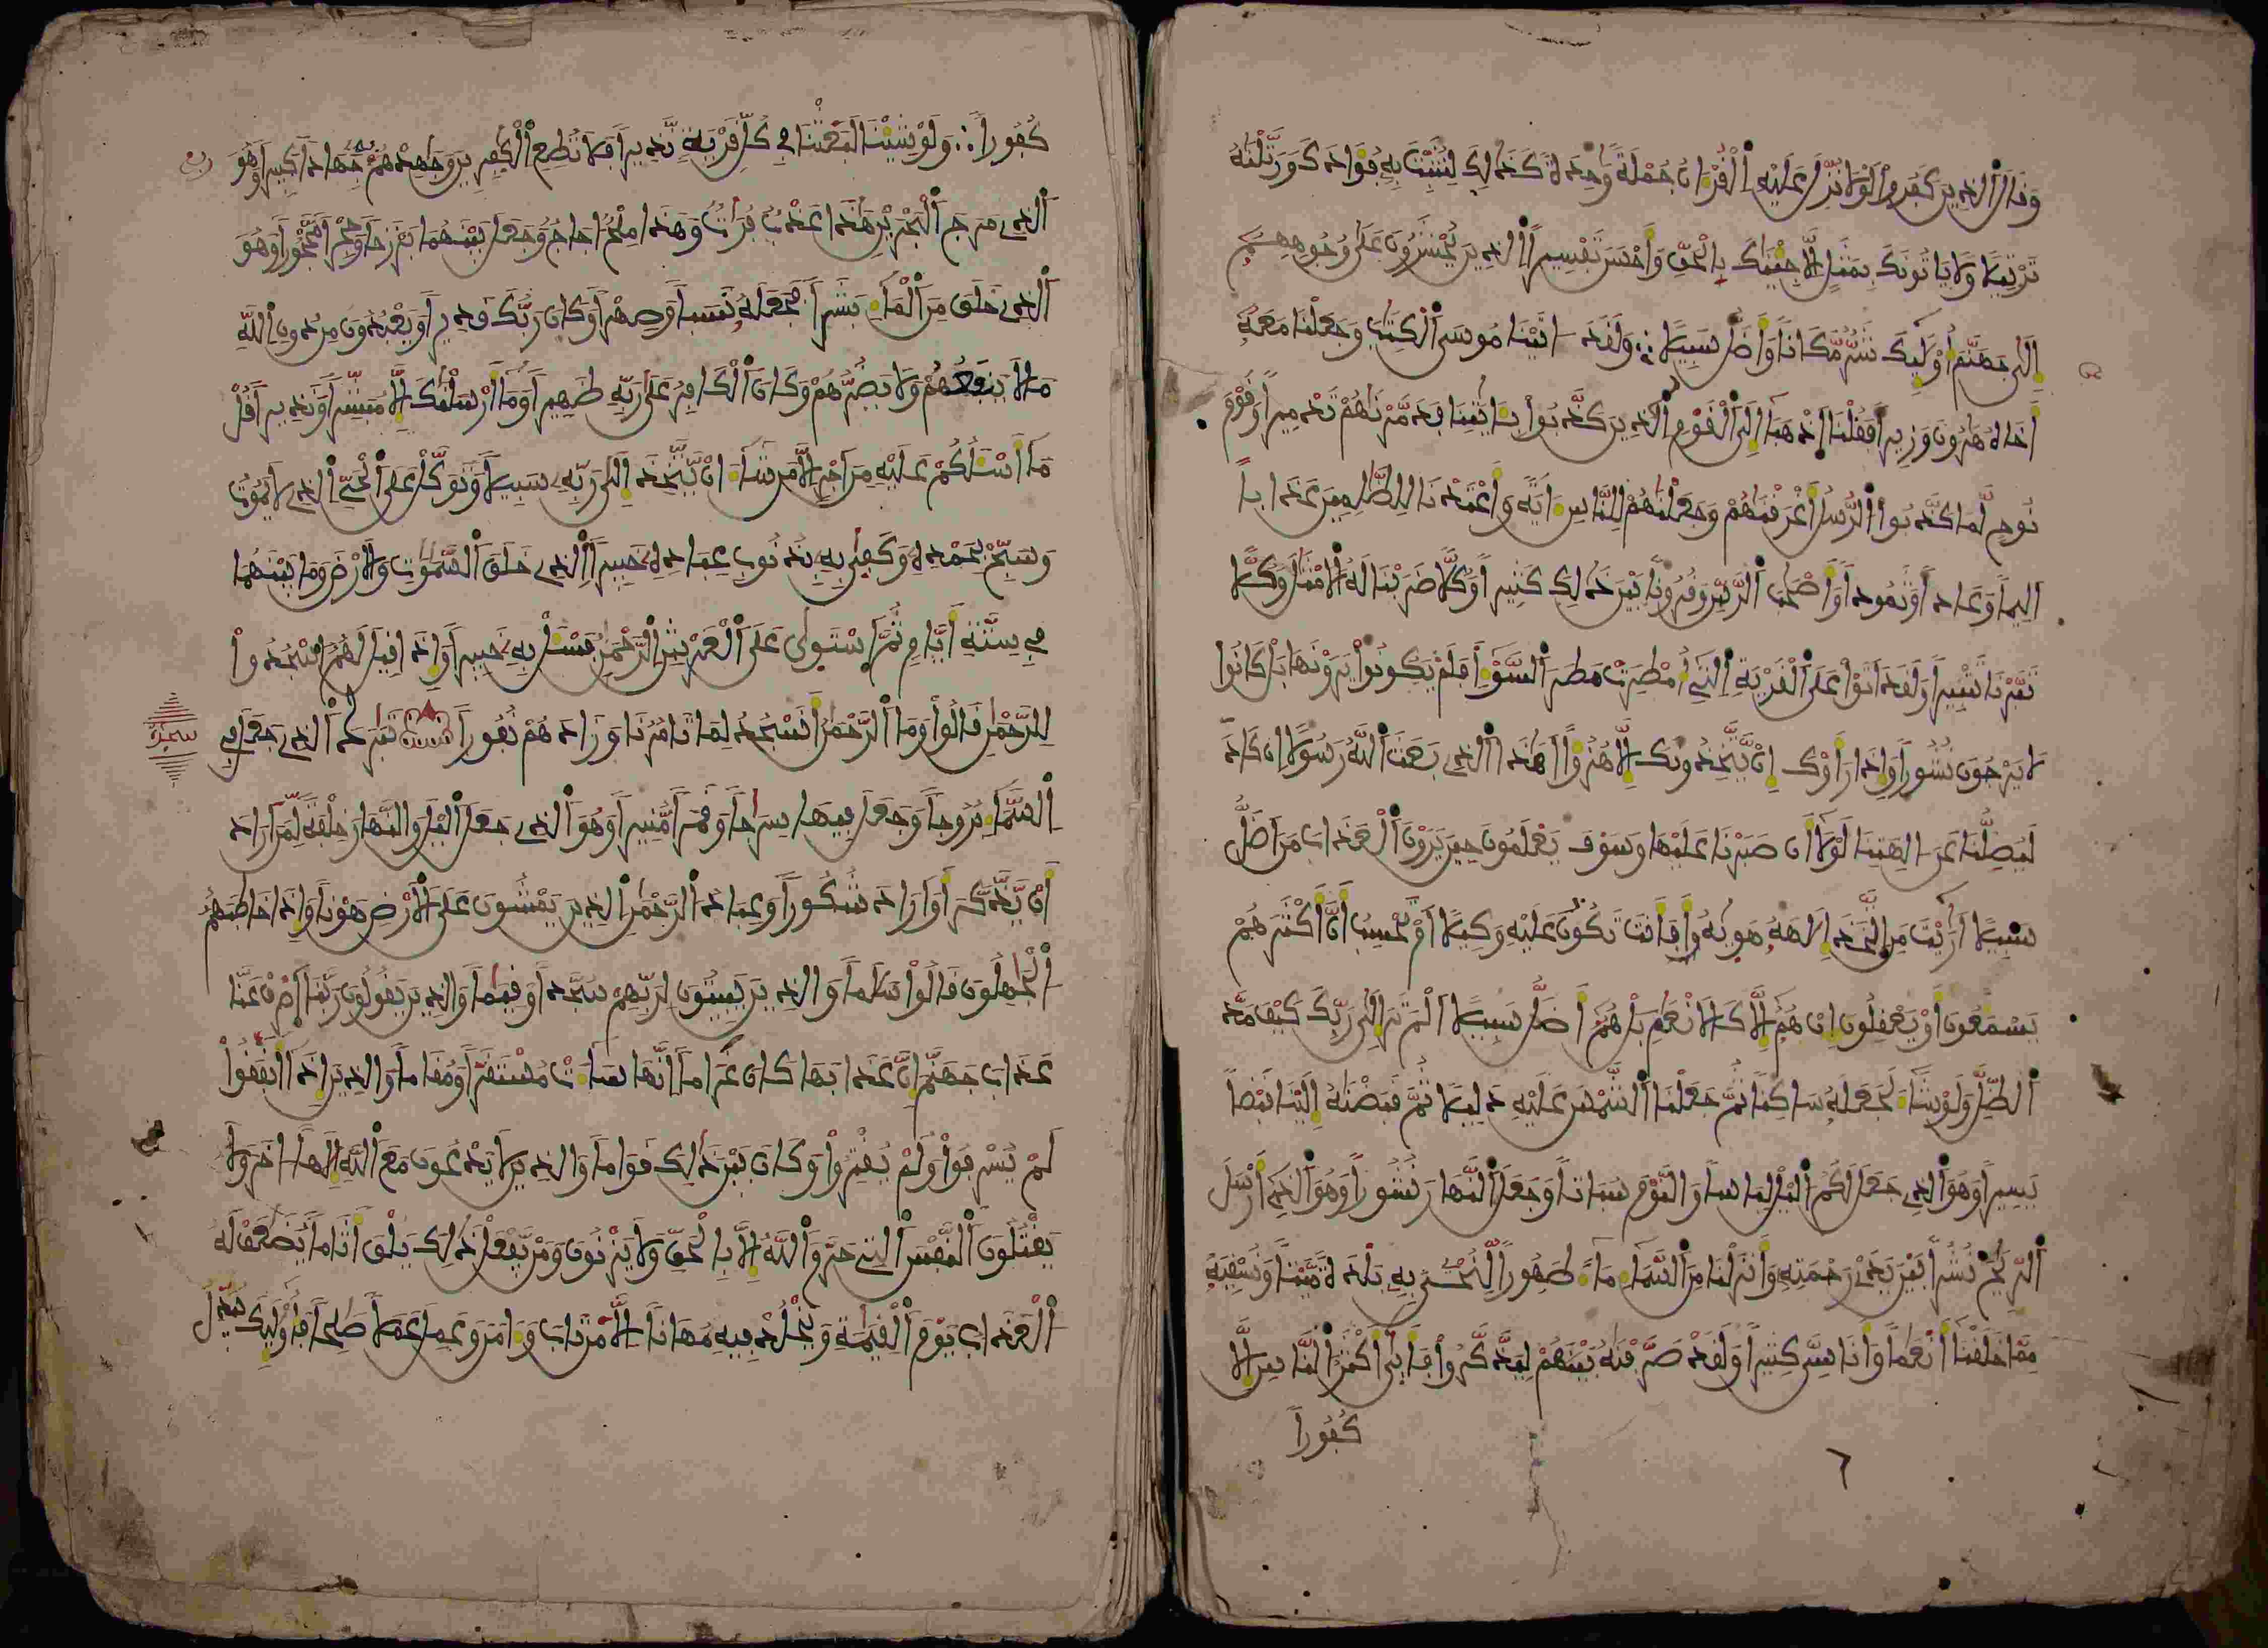 وَقَالَ الذِينَ كَفَرُوا لَوْلَا نُزِّلَ عَلَيْهِ الْقُرْءَانُ جُمْلَةً وَاحِدَةً كَذَالِكَ لِنُثَبِّتَ بِهِ فُؤَادَكَ وَرَتَّلْنَهُ
تَرْتِيلًا وَلَا يَاتُونَكَ بِمَثَلٍ اِلَّا جِئْنَكَ بِالْحَقِّ وَأَحْسَنَ تَفْسِيرًا الذِينَ يُحْشَرُونَ عَلَى وُجُوهِهِمْ
إِلَى جَهَنَّمَ أُوْلَئِكَ شَرٌّ مَّكَانًا وَأَضَلُّ سَبِيلًا وَلَقَدَ اتَيْنَا مُوسَى الْكِتَبَ وَجَعَلْنَا مَعَهُ
أَخَاهُ هَرُونَ وَزِيرًا فَقُلْنَا اَذْهَبَا إِلَى الْقَوْمِ الذِينَ كَذَّبُوا بِئَايَتِنَا فَدَمَّرْنَهُمْ تَدْمِيرًا وَقَوْمَ
نُوحٍ لَّمَّا كَذَّبُوا الرُّسُلَ أَغْرَقْنَهُمْ وَجَعَلْنَهُمْ لِلنَّاسِ ءَايَةً وَأَعْتَدْنَا لِلظَّلِمِينَ عَذَابًا
اَلِيمًا وَعَادًا وَثَمُودًا وَأَصْحَبَ الرَّسِّ وَقُرُونًا بَيْنَ ذَلِكَ كَثِيرًا وَكُلًّا ضَرَبْنَا لَهُ الْأَمْثَلَ وَكُلًّا
تَبَّرْنَا تَتْبِيرًا وَلَقَدَ اتَوْا عَلَى الْقَرْيَةِ التِي أُمْطِرَتْ مَطَرَ السَّوْءِ اَفَلَمْ يَكُونُوا يَرَوْنَهَا بَلْ كَانُوا
لَا يَرْجُونَ نُشُورًا وَإِذَا رَأَوْكَ إِنْ يَّتَّخِذُونَكَ إِلَّا هُزُؤًا اَهَذَا الذِي بَعَثَ اللَّهُ رَسُولًا اِن كَادَ
لَيُضِلُّنَا عَنَ الِهَتِنَا لَوْلَا أَن صَبَرْنَا عَلَيْهَا وَسَوْفَ يَعْلَمُونَ حِينَ يَرَوْنَ الْعَذَابَ مَنَ اضَلُّ
سَبِيلًا اَرَيْتَ مَنِ اِتَّخَذَ إِلَهَهُ هَوِيهُ أَفَأَنتَ تَكُونُ عَلَيْهِ وَكِيلًا اَمْ تَحْسِبُ أَنَّ أَكْثَرَهُمْ
يَسْمَعُونَ أَوْ يَعْقِلُونَ إِنْ هُمُ إِلَّا كَالْأَنْعَمِ بَلْ هُمُ أَضَلُّ سَبِيلًا اَلَمْ تَرَ إِلَى رَبِّكَ كَيْفَ مَدَّ
الظِّلَّ وَلَوْ شَاءَ لَجَعَلَهُ سَاكِنًا ثُمَّ جَعَلْنَا الشَّمْسَ عَلَيْهِ دَلِيلًا ثُمَّ قَبَضْنَهُ إِلَيْنَا قَبْضًا
يَسِيرًا وَهُوَ الذِي جَعَلَ لَكُمُ الَيْلَ لِبَاسًا وَالنَّوْمَ سُبَاتًا وَجَعَلَ النَّهَارَ نُشُورًا وَهُوَ الذِي أَرْسَلَ
الرِّيَحَ نُشُرًا بَيْنَ يَدَيْ رَحْمَتِهِ وَأَنزَلْنَا مِنَ السَّمَاءِ مَاءً طَهُورًا لِّنُحْيِيَ بِهِ بَلْدَةً مَّيْتًا وَنُسْقِيَهُ
مِمَّا خَلَقْنَا أَنْعَمًا وَأَنَاسِيَّ كَثِيرًا وَلَقَدْ صَرَّفْنَهُ بَيْنَهُمْ لِيَذَّكَّرُوا فَأَبَى أَكْثَرُ النَّاسِ إِلَّا
كُفُورًا
كُفُورًا وَلَوْ شِئْنَا لَبَعَثْنَا فِي كُلِّ قَرْيَةٍ نَّذِيرًا فَلَا تُطِعِ الْكَفِرِينَ وَجَهِدْهُم بِهِ جِهَادًا كَبِيرًا وَهُوَ
الذِي مَرَجَ الْبَحْرَيْنِ هَذَا عَذْبٌ فُرَاتٌ وَهَذَا مِلْحٌ اجَاجٌ وَجَعَلَ بَيْنَهُمَا بَرْزَخًا وَحِجْرًا مَّحْجُورًا وَهُوَ
الذِي خَلَقَ مِنَ الْمَاءِ بَشَرًا فَجَعَلَهُ نَسَبًا وَصِهْرًا وَكَانَ رَبُّكَ قَدِيرًا وَيَعْبُدُونَ مِن دُونِ اللَّهِ
مَا لَا يَنفَعُهُمْ وَلَا يَضُرُّهُمْ وَكَانَ الْكَافِرُ عَلَى رَبِّهِ ظَهِيرًا وَمَا أَرْسَلْنَكَ إِلَّا مُبَشِّرًا وَنَذِيرًا قُلْ
مَا أَسْئَلُكُمْ عَلَيْهِ مِنَ اجْرٍ اِلَّا مَن شَاءَ انْ يَّتَّخِذَ إِلَى رَبِّهِ سَبِيلًا وَتَوَكَّلْ عَلَى الْحَيِّ الذِي لَا يَمُوتُ
وَسَبِّحْ بِحَمْدِهِ وَكَفَى بِهِ بِذُنُوبِ عِبَادِهِ خَبِيرًا الذِي خَلَقَ السَّمَوَتِ وَالْأَرْضَ وَمَا بَيْنَهُمَا
فِي سِتَّةِ أَيَّامٍ ثُمَّ اَسْتَوَى عَلَى الْعَرْشِ الرَّحْمَنُ فَسْئَلْ بِهِ خَبِيرًا وَإِذَا قِيلَ لَهُمُ اسْجُدُوا
لِلرَّحْمَنِ قَالُوا وَمَا الرَّحْمَنُ أَنَسْجُدُ لِمَا تَامُرُنَا وَزَادَهُمْ نُفُورًا تَبَرَكَ الذِي جَعَلَ فِي
سجدة
السَّمَاءِ بُرُوجًا وَجَعَلَ فِيهَا سِرَجًا وَقَمَرًا مُّنِيرًا وَهُوَ الذِي جَعَلَ الَيْلَ وَالنَّهَارَ خِلْفَةً لِّمَنَ ارَادَ
أَنْ يَّذَّكَّرَ أَوَ ارَادَ شُكُورًا وَعِبَادُ الرَّحْمَنِ الذِينَ يَمْشُونَ عَلَى الْأَرْضِ هَوْنًا وَإِذَا خَاطَبَهُمُ
الْجَهِلُونَ قَالُوا سَلَمًا وَالذِينَ يَبِيتُونَ لِرَبِّهِمْ سُجَّدًا وَقِيَمًا وَالذِينَ يَقُولُونَ رَبَّنَا اَصْرِفْ عَنَّا
عَذَابَ جَهَنَّمَ إِنَّ عَذَابَهَا كَانَ غَرَامًا اِنَّهَا سَاءَتْ مُسْتَقَرًّا وَمُقَامًا وَالذِينَ إِذَا أَنفَقُوا
لَمْ يُسْرِفُوا وَلَمْ يُقْتِرُوا وَكَانَ بَيْنَ ذَلِكَ قَوَامًا وَالذِينَ لَا يَدْعُونَ مَعَ اللَّهِ إِلَهًا اخَرَ وَلَا
يَقْتُلُونَ النَّفْسَ التِي حَرَّمَ اللَّهُ إِلَّا بِالْحَقِّ وَلَا يَزْنُونَ وَمَنْ يَّفْعَلْ ذَلِكَ يَلْقَ أَثَامًا يُضَعَفْ لَهُ
الْعَذَابُ يَوْمَ الْقِيَمَةِ وَيَخْلُدْ فِيهِ مُهَانًا اِلَّا مَن تَابَ وَءَامَنَ وَعَمِلَ عَمَلًا صَلِحًا فَأُوْلَئِكَ يُبَدِّلُ